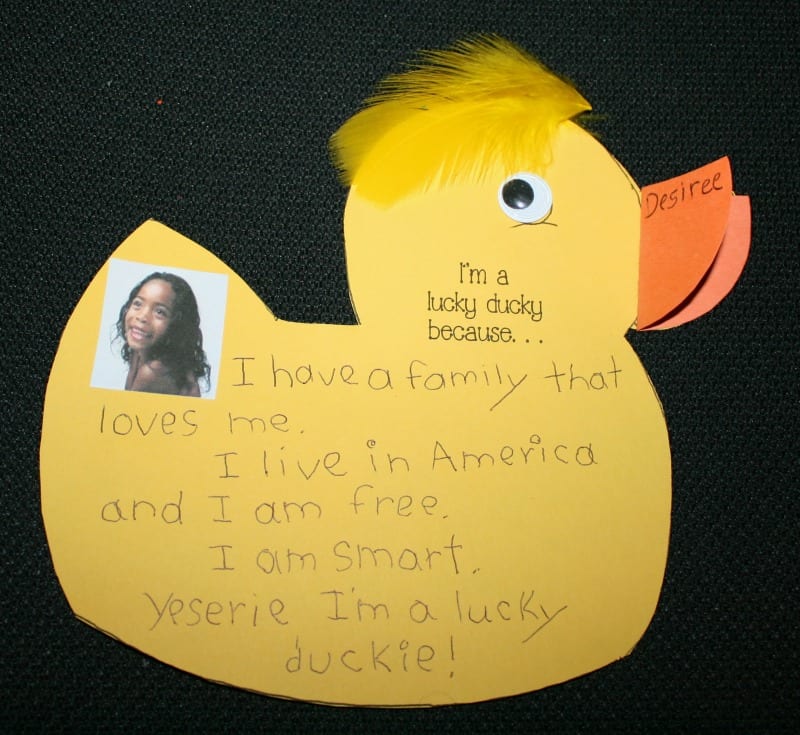 Desiree
I'm a
lucky ducky
because...
I have a family that
loves me.
I live in America
and I am free.
I am smart.
Yeserie I'm a lucky
duckie!